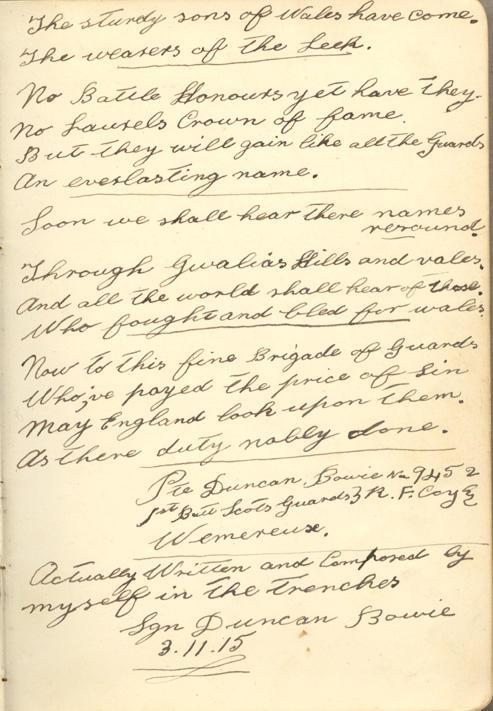 The sturdy sons of Wales have come.
The wearers of the Leek.
No Battle Honours yet have they.
No Laurels Crown of fame.
But they will gain like all the Guards
An everlasting name.
Soon we shall hear there names
resound.
Through Gwalias Hills and vales.
And all the world shall hear of those.
Who fought and bled for wales.
Now to this fine Brigade of Guards
Who;ve payed the price of Sin
May England look upon them.
As there duty nobly done.
Pte Duncan Bowie No 9452
1st Batt Scots Guards R. F. Coy
Wemereux.
Actually Written and Composed by
myself in the trenches
Sgn Duncan Bowie
3.11.15